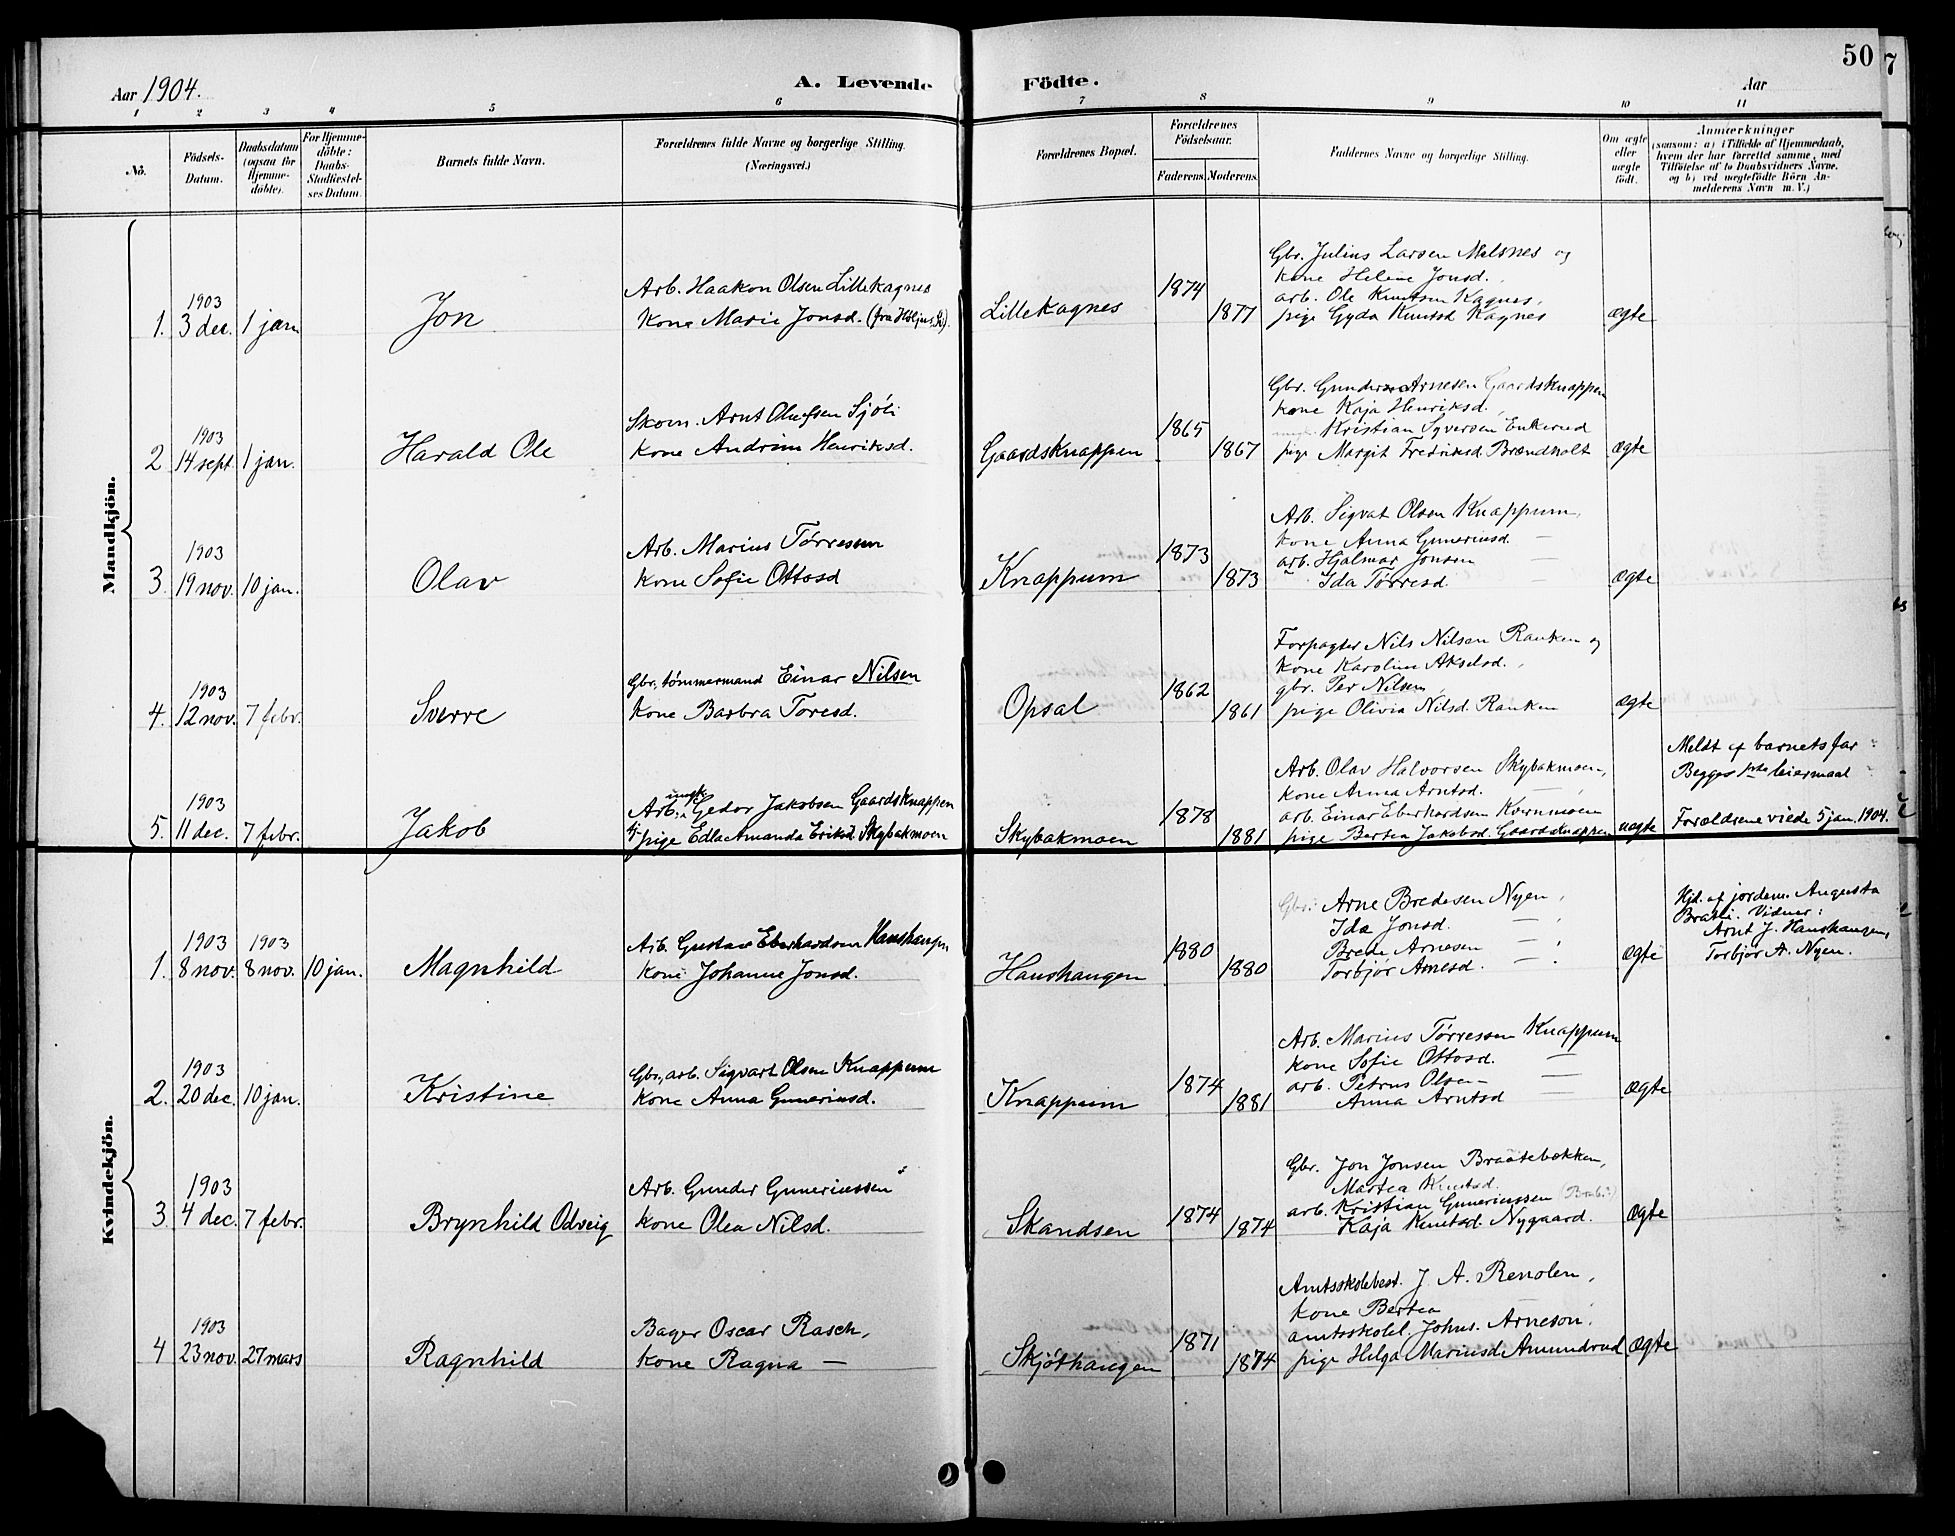 50
7
Aar 1904.
A. Levende
Födte.
Aar
1 2 3 4 5 6 7 8 9 10 11
No.
Födsels-
Datum.
Daabsdatum
(ogsaa for
Hjemme-
döbte).
For Hjemme-
döbte:
Daabs-
Stadfæstel-
ses Datum.
Barnets fulde Navn.
Forældrenes fulde Navne og borgerlige Stilling.
(Næringsvei.)
Forældrenes Bopæl.
Forældrenes
Födselsaar.
Faderens.
Moderens.
Faddernes Navne og borgerlige Stilling.
Om ægte
eller
uægte
födt.
Anmærkninger
(saasom: a) i Tilfælde af Hjemmedaab,
hvem der har forrettet samme, med
Tilföielse af to Daabsvidners Navne,
og b) ved uægtefödte Börn An-
melderens Navn m. V.)
Mandkjön.
1.
1903
3 dec.
1 jan
Jon
Arb. Haakon Olsen Lillekagnes
kone Marie Jonsd.
Lillekagnes
1874
1877
Gbr. Julius Larsen Melsnes og
kone Helene Jonsd.
arb. Ole Knutsen Kagnes,
pige Gyda Knutsd Kagnes
ægte
2
1903
14 sept.
1 jan.
Harald Ole
Skom. Arnt Olufsen Sjöli
kone Andrine Henriksd.
Gaardsknappen
1865
1867
Gbr. Gunder Arnesen Gaardsknappen
kone Kaja Henriksd.
Kristian Syversen Enkerud
pige Margit Fredriksd. Brændholt
ægte
3.
1903
19 nov.
10 jan.
Olav
Arb. Marius Tørresen
kone Sofie Ottosd
Knappum
1873
1873
Arb. Sigvat Olsen Knappum,
kone Anna Guneriusd. —
arb. Hjalmar Jonsen —
" Ida Tørresd. —
ægte
4.
1903
12 nov.
7 febr.
Sverre
Gbr., tømmermand Einar Nilsen
kone Barbra Toresd.
Opsal
1862
1861
Forpagter Nils Nilsen Ranken og
kone Karoline Akselsd.
gbr. Per Nilsen,
pige Olivia Nilsd. Ranken
ægte
5.
1903
11 dec.
7 febr.
Jakob
Arb., ungk. Gedor Jakobsen Gaardsknappen
tj. pige Edla Amanda Eriksd. Skybakmoen
Skybakmoen
1878
1881
Arb. Olav Halvorsen Skybakmoen,
kone Anna Arntsd. —
arb. Einar Eberhardsen Kvernmoen
pige Bertea Jakobsd. Gaardsknappen
uægte
Meldt af barnets far
Begges 1ste leiermaal
Forældrene viede 5 jan. 1904.
Kvindekjön.
1.
1903
8 nov.
1903
8 nov.
10 jan.
Magnhild
Arb. Gustav Eberhardsen Haushaugen
kone Johanne Jonsd.
Haushaugen
1880
1880
Gbr. Arne Bredesen Nyen,
Ida Jonsd. —
Brede Arnesen —
Torbjør Arnesd. —
ægte
Hjd. af jordem. Augusta
Bratli. Vidner:
Arnt J. Haushaugen,
Torbjør A. Nyen.
2.
1903
20 dec.
10 jan.
Kristine
Gbr., arb. Sigvart Olsen Knappum
kone Anna Gunneriusd.
Knappum
1874
1881
Arb. Marius Tørresen Knappum
kone Sofie Ottosd. —
arb. Petrus Olsen —
Anna Arntsd —
ægte
3
1903
4 dec.
7 febr.
Brynhild Odveig
Arb. Gunder Gunneriussen
kone Olea Nilsd.
Skandsen
1874
1874
Gbr. Jon Jonsen Braatebækken,
Martea Knutsd.
arb. Kristian Gunneriussen
Kaja Knutsd. Nygaard.
ægte
4
1903
23 nov.
27 mars
Ragnhild
Bager Oscar Rasch,
kone Ragna —
Skjøthaugen
1871
1874
Amtsskolebest. J. A. Renolen,
kone Bertea
amtsskolel. Johns. Arneson,
pige Helga Mariusd. Amundrud
ægte